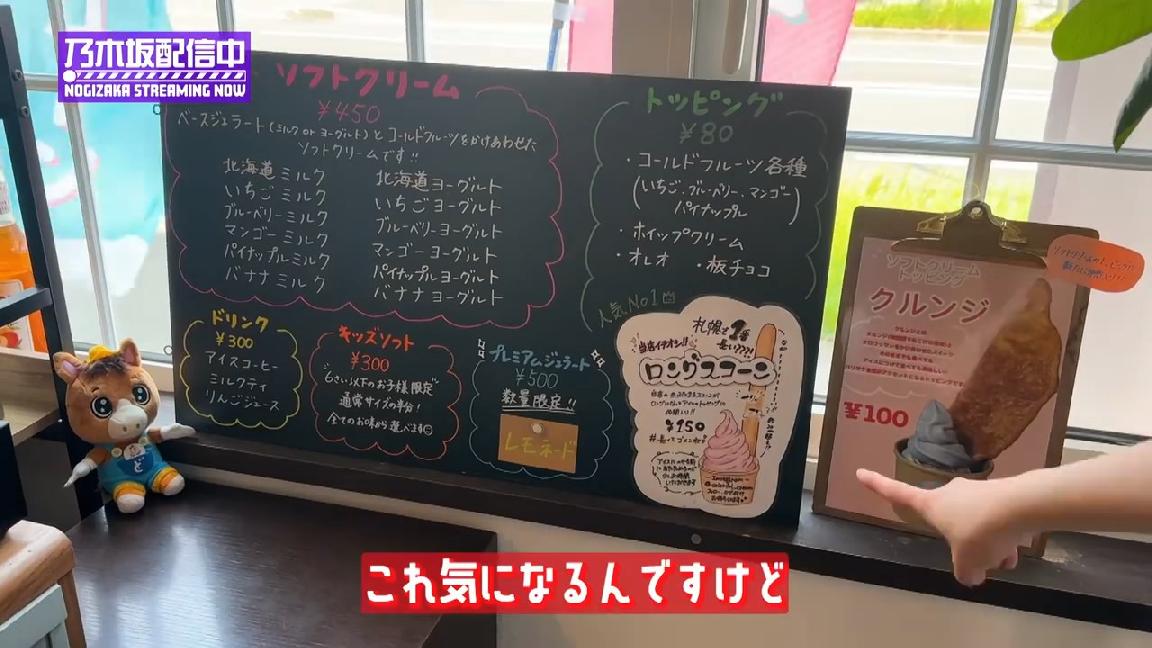 乃木坂配信中
NOGIZAKA STREAMING NOW
ソフトクリーム
¥450
ベースジェラート(ミルク or ヨーグルト)とコールドフルーツをかけあわせた
ソフトクリームです!!
北海道ミルク
いちごミルク
ブルーベリーミルク
マンゴーミルク
パイナップルミルク
バナナミルク
北海道ヨーグルト
いちごヨーグルト
ブルーベリーヨーグルト
マンゴーヨーグルト
パイナップルヨーグルト
バナナヨーグルト
トッピング
¥80
・コールドフルーツ各種
(いちご、ブルーベリー、マンゴー
パイナップル)
・ホイップクリーム
・オレオ ・板チョコ
ドリンク
¥300
アイスコーヒー
ミルクティ
りんごジュース
キッズソフト
¥300
6さい以下のお子様限定
通常サイズの半分!
全てのお味から選べます
プレミアムジェラート
¥500
数量限定!!
レモネード
人気No1
札幌で1番
長い??!!
当店イチオシ!!
ロングスコーン
¥150
ソフトクリーム
トッピング
クルンジ
¥100
ど
これ気になるんですけど